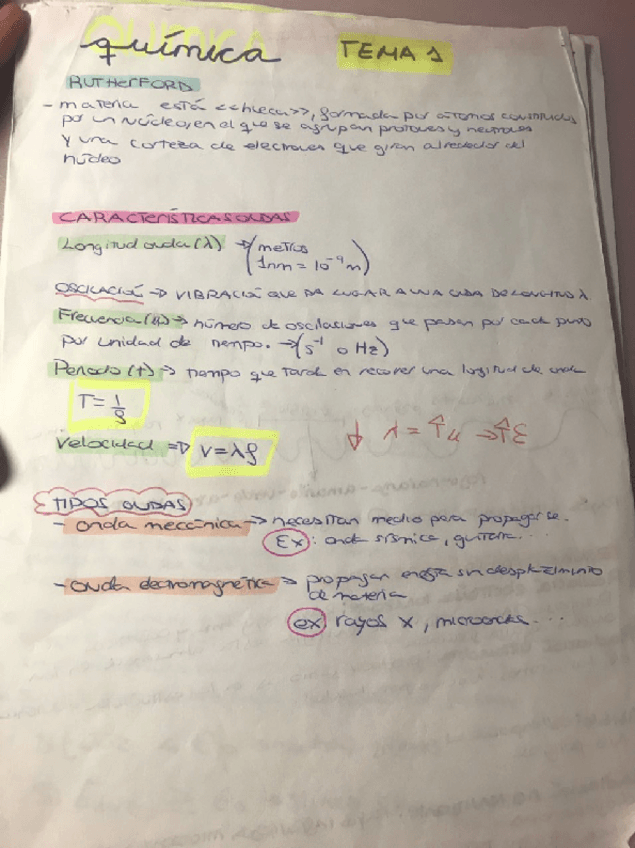 química TEMA 1
RUTHERFORD
- materia está <<hueca>>, formada por átomos constituidos
por un núcleo, en el que se agrupan protones y neutrones
y una corteza de electrones que giran alrededor del
núcleo
CARACTERÍSTICAS ONDAS
Longitud onda (λ) → (metros
1nm = 10⁻⁹ m)
OSCILACIÓN → VIBRACIÓN QUE DA LUGAR A UNA ONDA DE LONGITUD λ
Frecuencia (μ) → número de oscilaciones que pasan por cada punto
por unidad de tiempo. → (s⁻¹ o Hz)
Periodo (t) → tiempo que tarda en recorrer una longitud de onda
T = 1/f
Velocidad ⇒ V = λf
↓ λ = ↑μ ⇒ ↑E
TIPOS ONDAS
- onda mecánica → necesitan medio para propagarse.
Ex: onda sísmica, guitarra...
- onda electromagnética → propagan energía sin desplazamiento
de materia
ex rayos x, microondas...